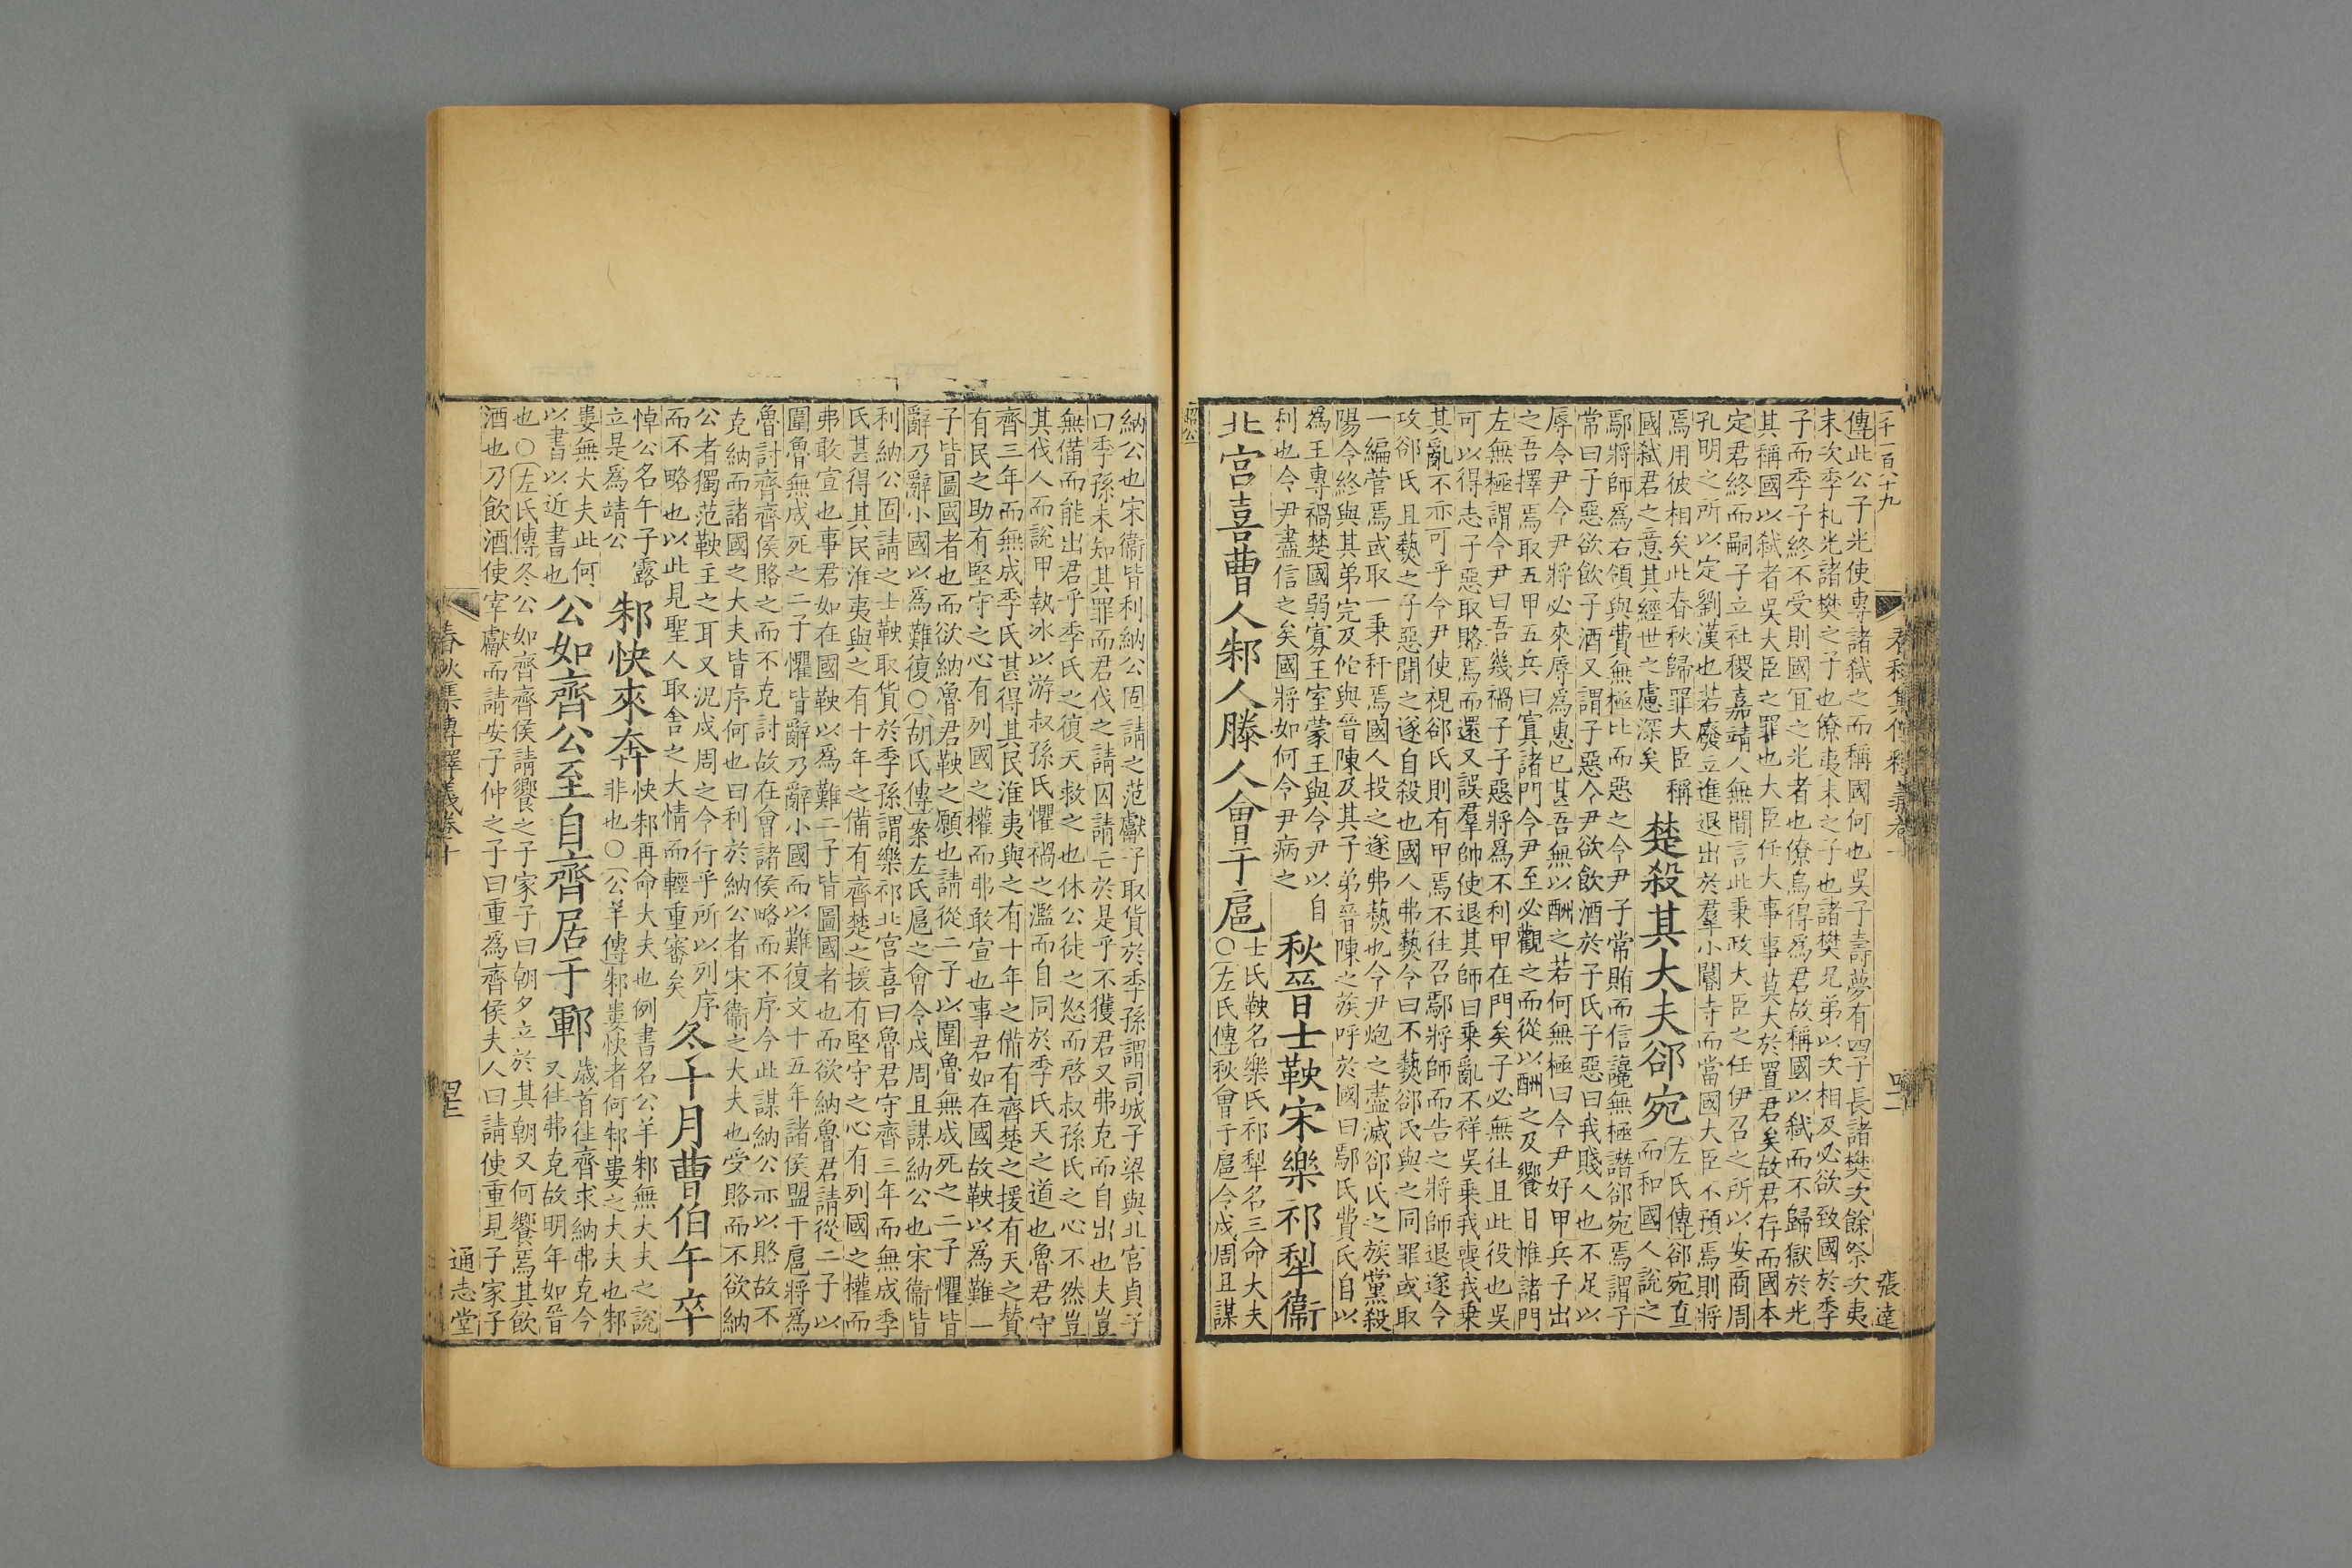 張達
傳此公子光使專諸弑之而稱國何也吳子壽夢有四子長諸樊次餘祭次夷
末次季札光諸樊之子也僚夷末之子也諸樊兄弟以次相及必欲致國於季
子而季子終不受則國宜之光者也僚烏得爲君故稱國以弑而不歸獄於光
其稱國以弑者吳大臣之罪也大臣任大事事莫大於置君矣故君存而國本
定君終而嗣子立社稷嘉靖人無間言此秉政大臣之任伊召之所以安商周
孔明之所以定劉漢也若廢立進退出於羣小閽寺而當國大臣不預焉則將
焉用彼相矣此春秋歸罪大臣稱
國弑君之意其經世之慮深矣
楚殺其大夫郤宛
左氏傳郤宛直
而和國人說之
鄢將師爲右領與費無極比而惡之令尹子常賄而信讒無極譖郤宛焉謂子
常曰子惡欲飲子酒又謂子惡令尹欲飲酒於子氏子惡曰我賤人也不足以
辱令尹令尹將必來辱爲惠已甚吾無以酬之若何無極曰令尹好甲兵子出
之吾擇焉取五甲五兵曰寘諸門令尹至必觀之而從以酬之及饗日帷諸門
左無極謂令尹曰吾幾禍子子惡將爲不利甲在門矣子必無往且此役也吳
可以得志子惡取賂焉而還又誤羣帥使退其師曰乘亂不祥吳乘我喪我乘
其亂不亦可乎令尹使視郤氏則有甲焉不往召鄢將師而告之將師退遂令
攻郤氏且爇之子惡聞之遂自殺也國人弗爇令曰不爇郤氏與之同罪或取
一編菅焉或取一秉秆焉國人投之遂弗爇也令尹炮之盡滅郤氏之族黨殺
陽令終與其弟完及佗與晉陳及其子弟晉陳之族呼於國曰鄢氏費氏自以
爲王專禍楚國弱寡王室蒙王與令尹以自
利也令尹盡信之矣國將如何令尹病之
秋晉士鞅宋樂祁犁衞
北宮喜曹人邾人滕人會于扈
士氏鞅名樂氏祁犁名三命大夫
○左氏傳秋會于扈令戍周且謀
昭公
納公也宋衞皆利納公固請之范獻子取貨於季孫謂司城子梁與北宮貞子
曰季孫未知其罪而君伐之請囚請亡於是乎不獲君又弗克而自出也夫豈
無備而能出君乎季氏之復天救之也休公徒之怒而啓叔孫氏之心不然豈
其伐人而說甲執冰以游叔孫氏懼禍之濫而自同於季氏天之道也魯君守
齊三年而無成季氏甚得其民淮夷與之有十年之備有齊楚之援有天之贊
有民之助有堅守之心有列國之權而弗敢宣也事君如在國故鞅以爲難二
子皆圖國者也而欲納魯君鞅之願也請從二子以圍魯無成死之二子懼皆
辭乃辭小國以爲難復○胡氏傳案左氏扈之會令戍周且謀納公也宋衞皆
利納公固請之士鞅取貨於季孫謂樂祁北宮喜曰魯君守齊三年而無成季
氏甚得其民淮夷與之有十年之備有齊楚之援有堅守之心有列國之權而
弗敢宣也事君如在國鞅以爲難二子皆圖國者也而欲納魯君請從二子以
圍魯無成死之二子懼皆辭乃辭小國而以難復文十五年諸侯盟于扈將爲
魯討齊齊侯賂之而不克討故在會諸侯略而不序今此謀納公亦以賂故不
克納而諸國之大夫皆序何也曰利於納公者宋衞之大夫也受賂而不欲納
公者獨范鞅主之耳又況戍周之令行乎所以列序
而不略也以此見聖人取舍之大情而輕重審矣
冬十月曹伯午卒
悼公名午子露
立是爲靖公
邾快來奔
快邾再命大夫也例書名公羊邾無大夫之說
非也○公羊傳邾婁快者何邾婁之大夫也邾
婁無大夫此何
以書以近書也
公如齊公至自齊居于鄆
歲首往齊求納弗克今
又往弗克故明年如晉
也○左氏傳冬公如齊齊侯請饗之子家子曰朝夕立於其朝又何饗焉其飲
酒也乃飲酒使宰獻而請安子仲之子曰重爲齊侯夫人曰請使重見子家子
春秋集傳釋義卷十
通志堂